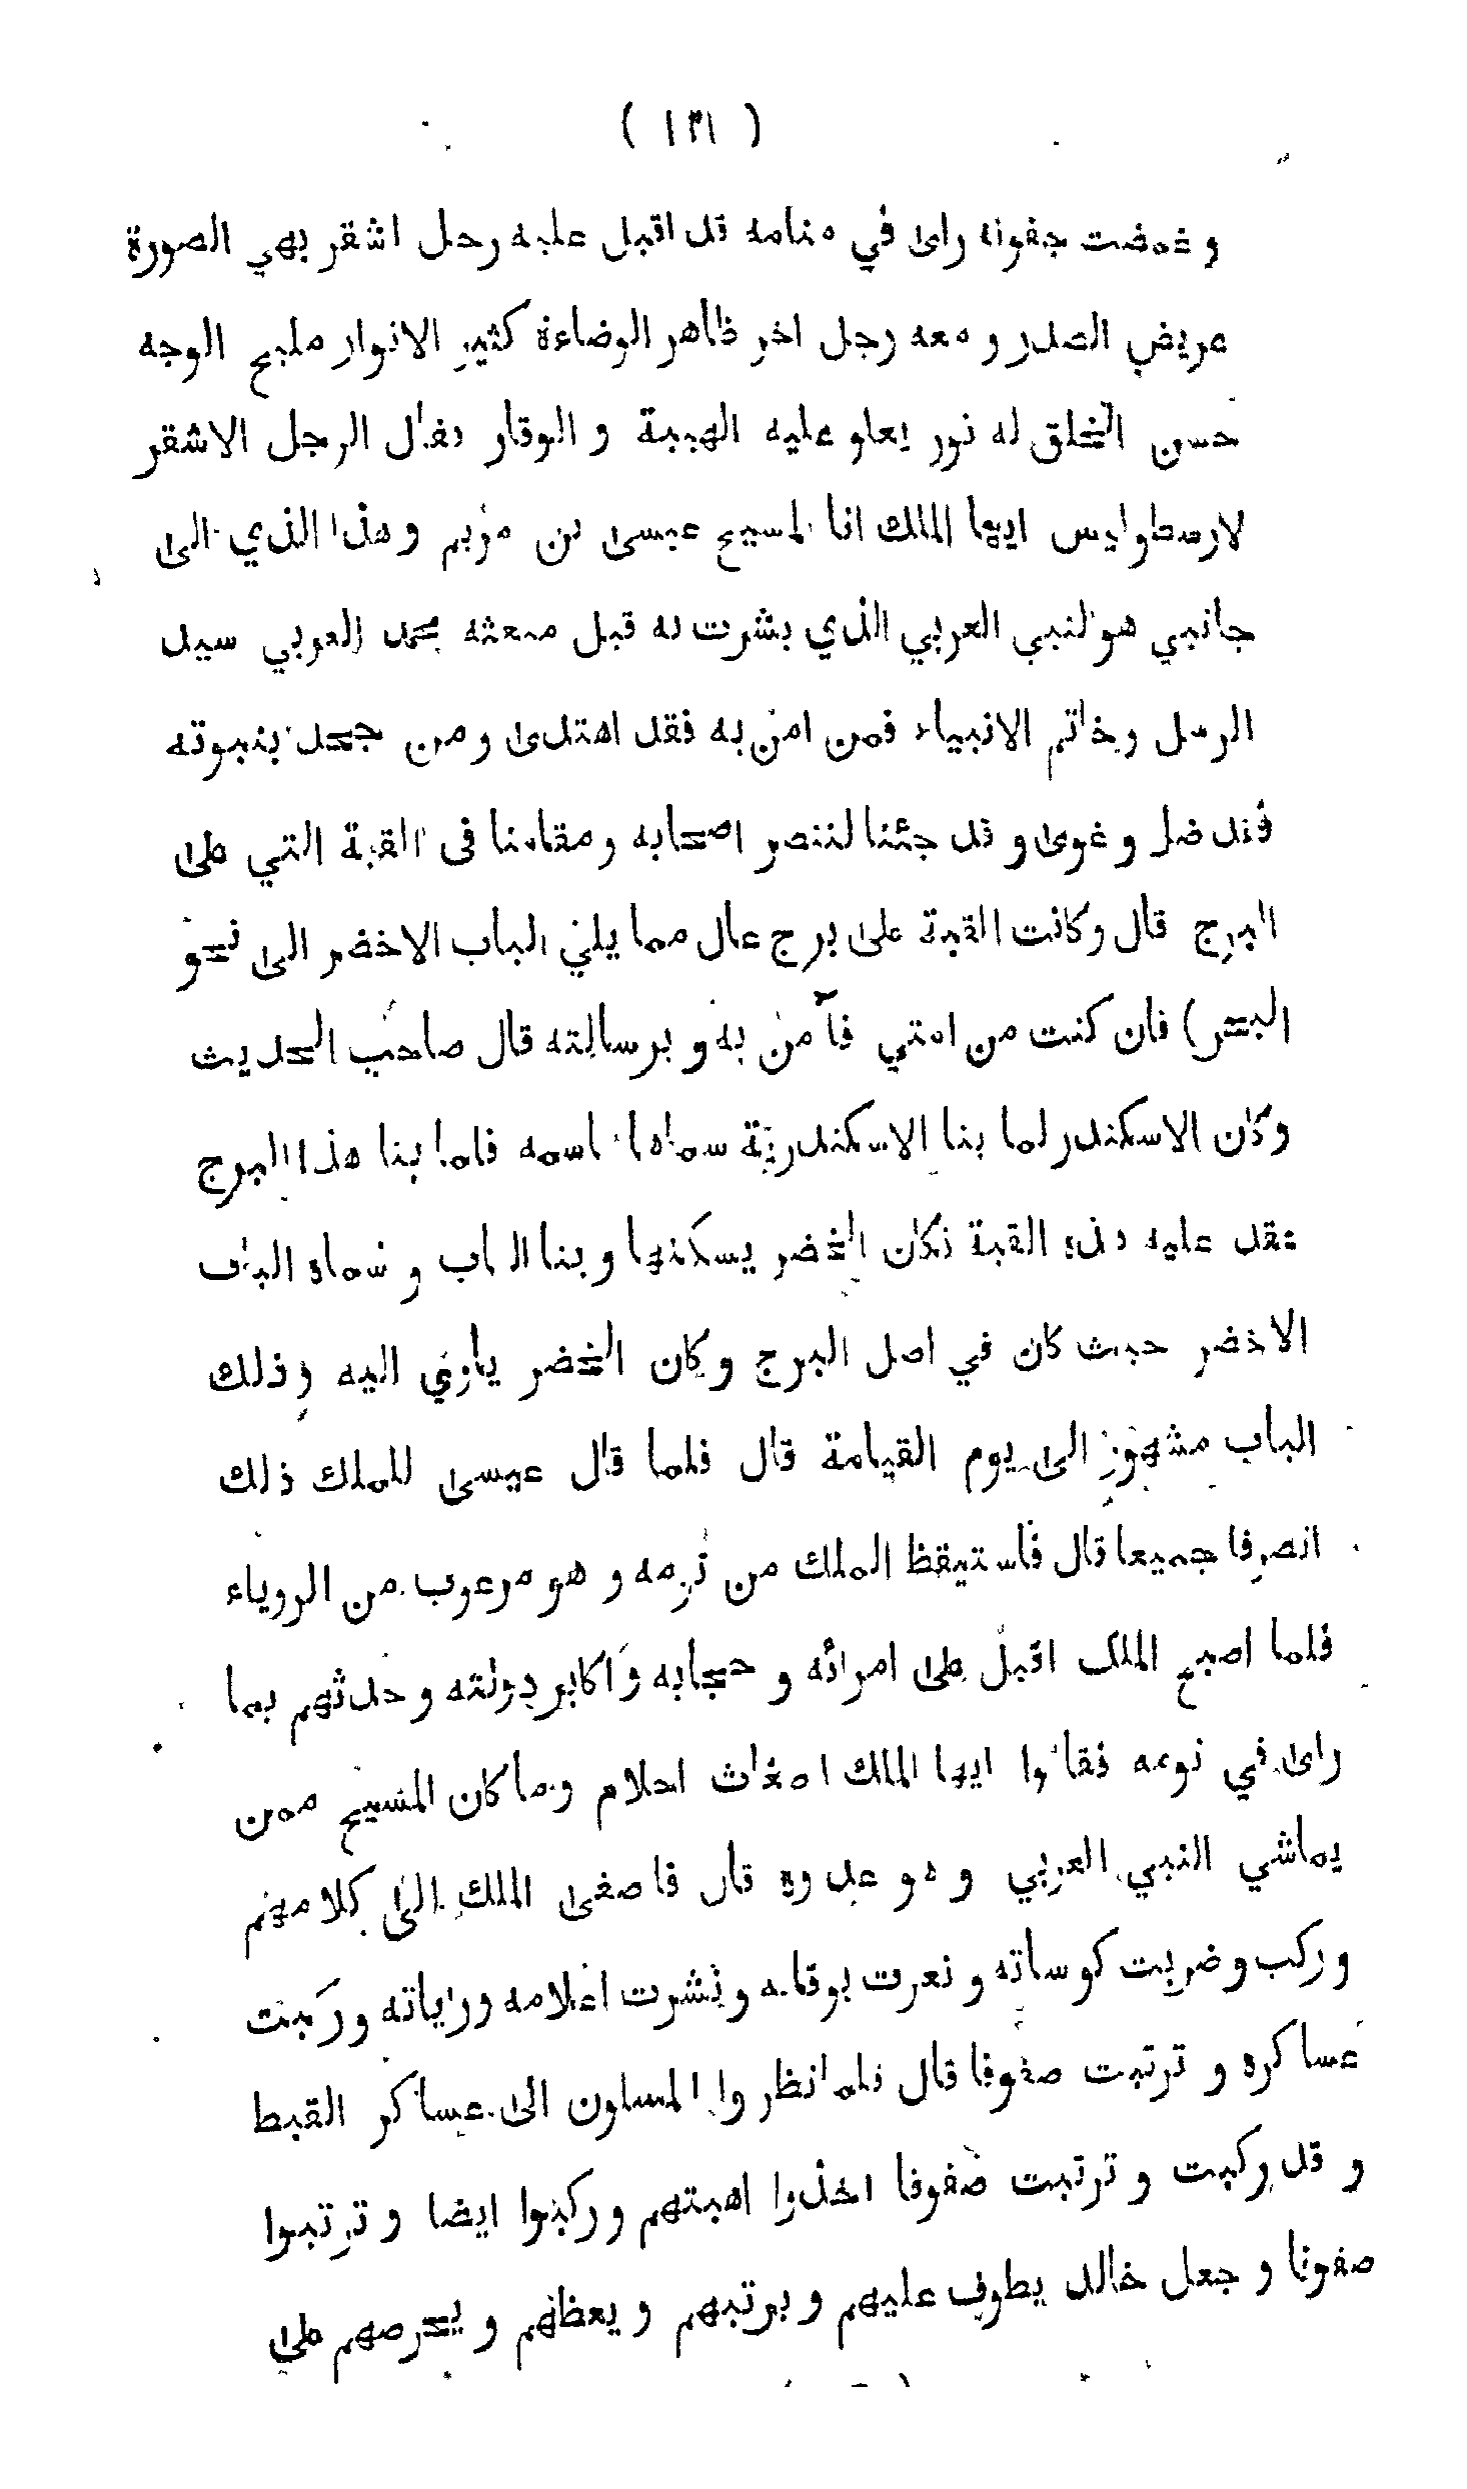 ( ١٣١ )
وغمضت جفونه راى في منامه قد اقبل عليه رجل اشقر بهي الصورة
عريض الصدر و معه رجل اخر ظاهر الوضاءة كثير الانوار مليح الوجه
حسن الخلق له نور يعلو عليه الهيبة و الوقار فقال الرجل الاشقر
لارسطوليس ايها الملك انا المسيح عيسى بن مريم وهذا الذي الى
جانبي هو النبي العربي الذي بشرت به قبل مبعثه محمد العربي سيد
الرسل وخاتم الانبياء فمن امن به فقد اهتدى ومن جحد بنبوته
فقد ضل و غوى و قد جئنا لننصر اصحابه ومقامنا فى القبة التي على
البرج قال وكانت القبة على برج عال مما يلي الباب الاخضر الى نحو
البحر) فان كنت من امتي فآمن به و برسالته قال صاحب الحديث
وكان الاسكندر لما بنا الاسكندرية سماها باسمه فلما بنا هذا البرج
عقد عليه هذه القبة فكان الخضر يسكنها و بنا الباب و سماه الباب
الاخضر حيث كان في اصل البرج وكان الخضر ياوي اليه وذلك
الباب مشهور الى يوم القيامة قال فلما قال عيسى للملك ذلك
انصرفا جميعا قال فاستيقظ الملك من نومه و هو مرعوب من الروياء
فلما اصبح الملك اقبل على امرائه و حجابه و اكابر دولته و حدثهم بما
راى في نومه فقالوا ايها الملك اضغاث احلام و ما كان المسيح ممن
يماشي النبي العربي و هو عدوه قال فاصغى الملك الى كلامهم
وركب وضربت كوساته و نعرت بوقاته و نشرت اعلامه وراياته وركبت
عساكره و ترتبت صفوفا قال فلما نظروا المسلمون الى عساكر القبط
و قد ركبت و ترتبت صفوفا اخذوا اهبتهم وركبوا ايضا و ترتبوا
صفوفا و جعل خالد يطوف عليهم و يرتبهم و يعظهم و يحرصهم على